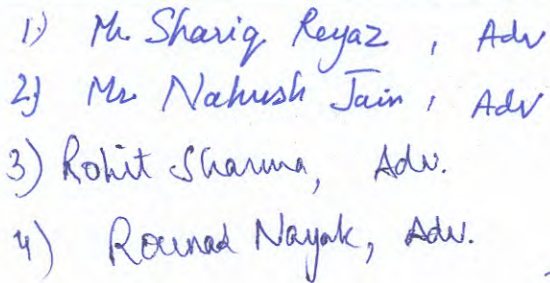 1.) Mr. Shariq Reyaz, Adv
2.) Mr. Nahush Jain, Adv
3) Rohit Sharma, Adv.
4) Rounad Nayak, Adv.